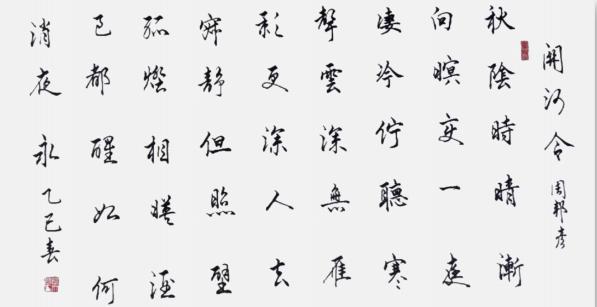 開河令 周邦彦
秋陰時晴漸
向暝变一庭
凄冷佇聽寒
聲雲深無雁
影更深人去
寂靜但照壁
孤燈相暎酒
已都醒如何
消夜永 乙巳春